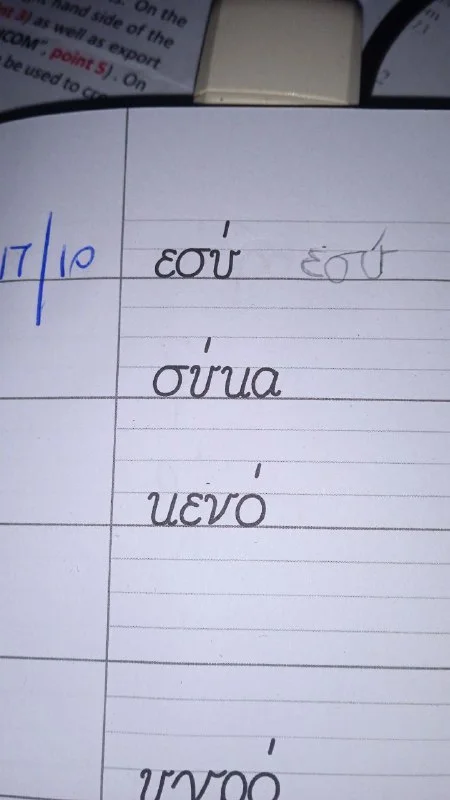 On the
hand side of the
3) as well as export
COM", point 5). On
be used to
17/10 εσύ εσύ
σύκα
κενό